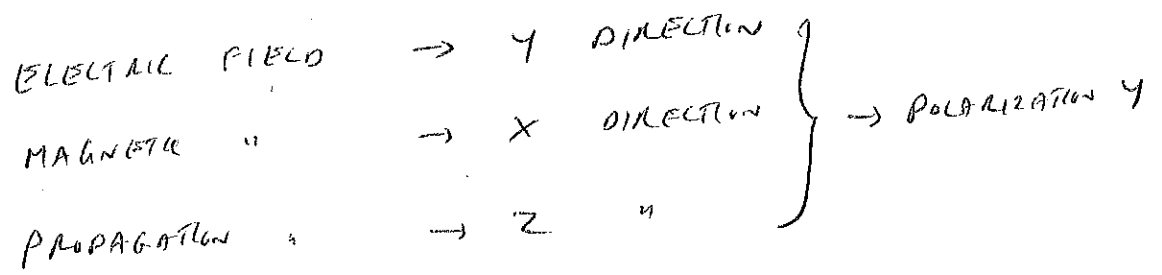 ELECTRIC FIELD → Y DIRECTION
MAGNETIC " → X DIRECTION → POLARIZATION Y
PROPAGATION " → Z "